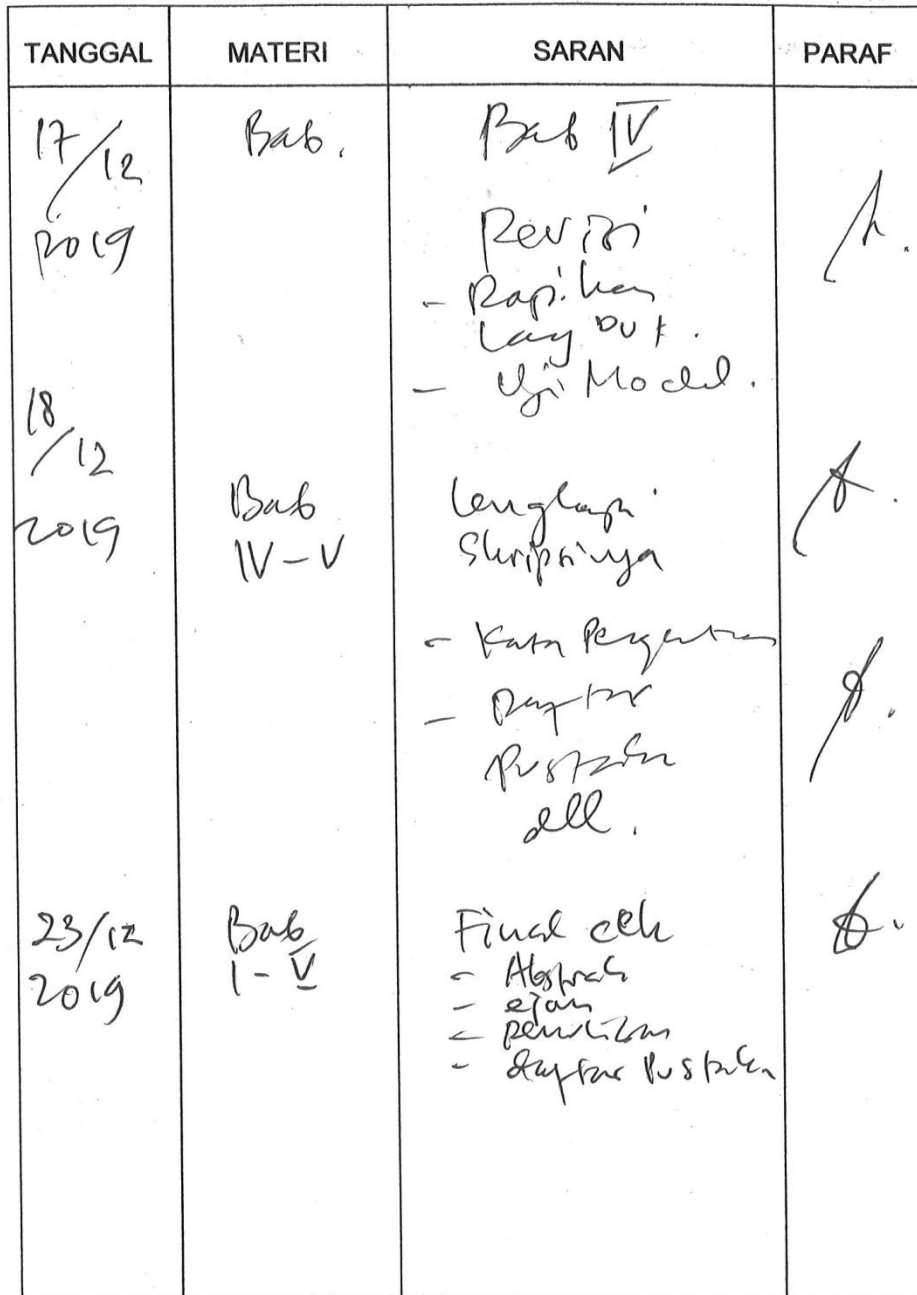 TANGGAL MATERI SARAN PARAF
17/12 Bab. Bab IV
2019 Revisi
- Rapikan
Lay out.
- Uji Model.
18/12
2019 Bab Lengkapi
IV-V Skripsinya
- Kata Pengantar
- Daftar
Pustaka
dll.
23/12 Bab Final cek
2019 I-V - Abstrak
- ejaan
- penulisan
- daftar Pustaka